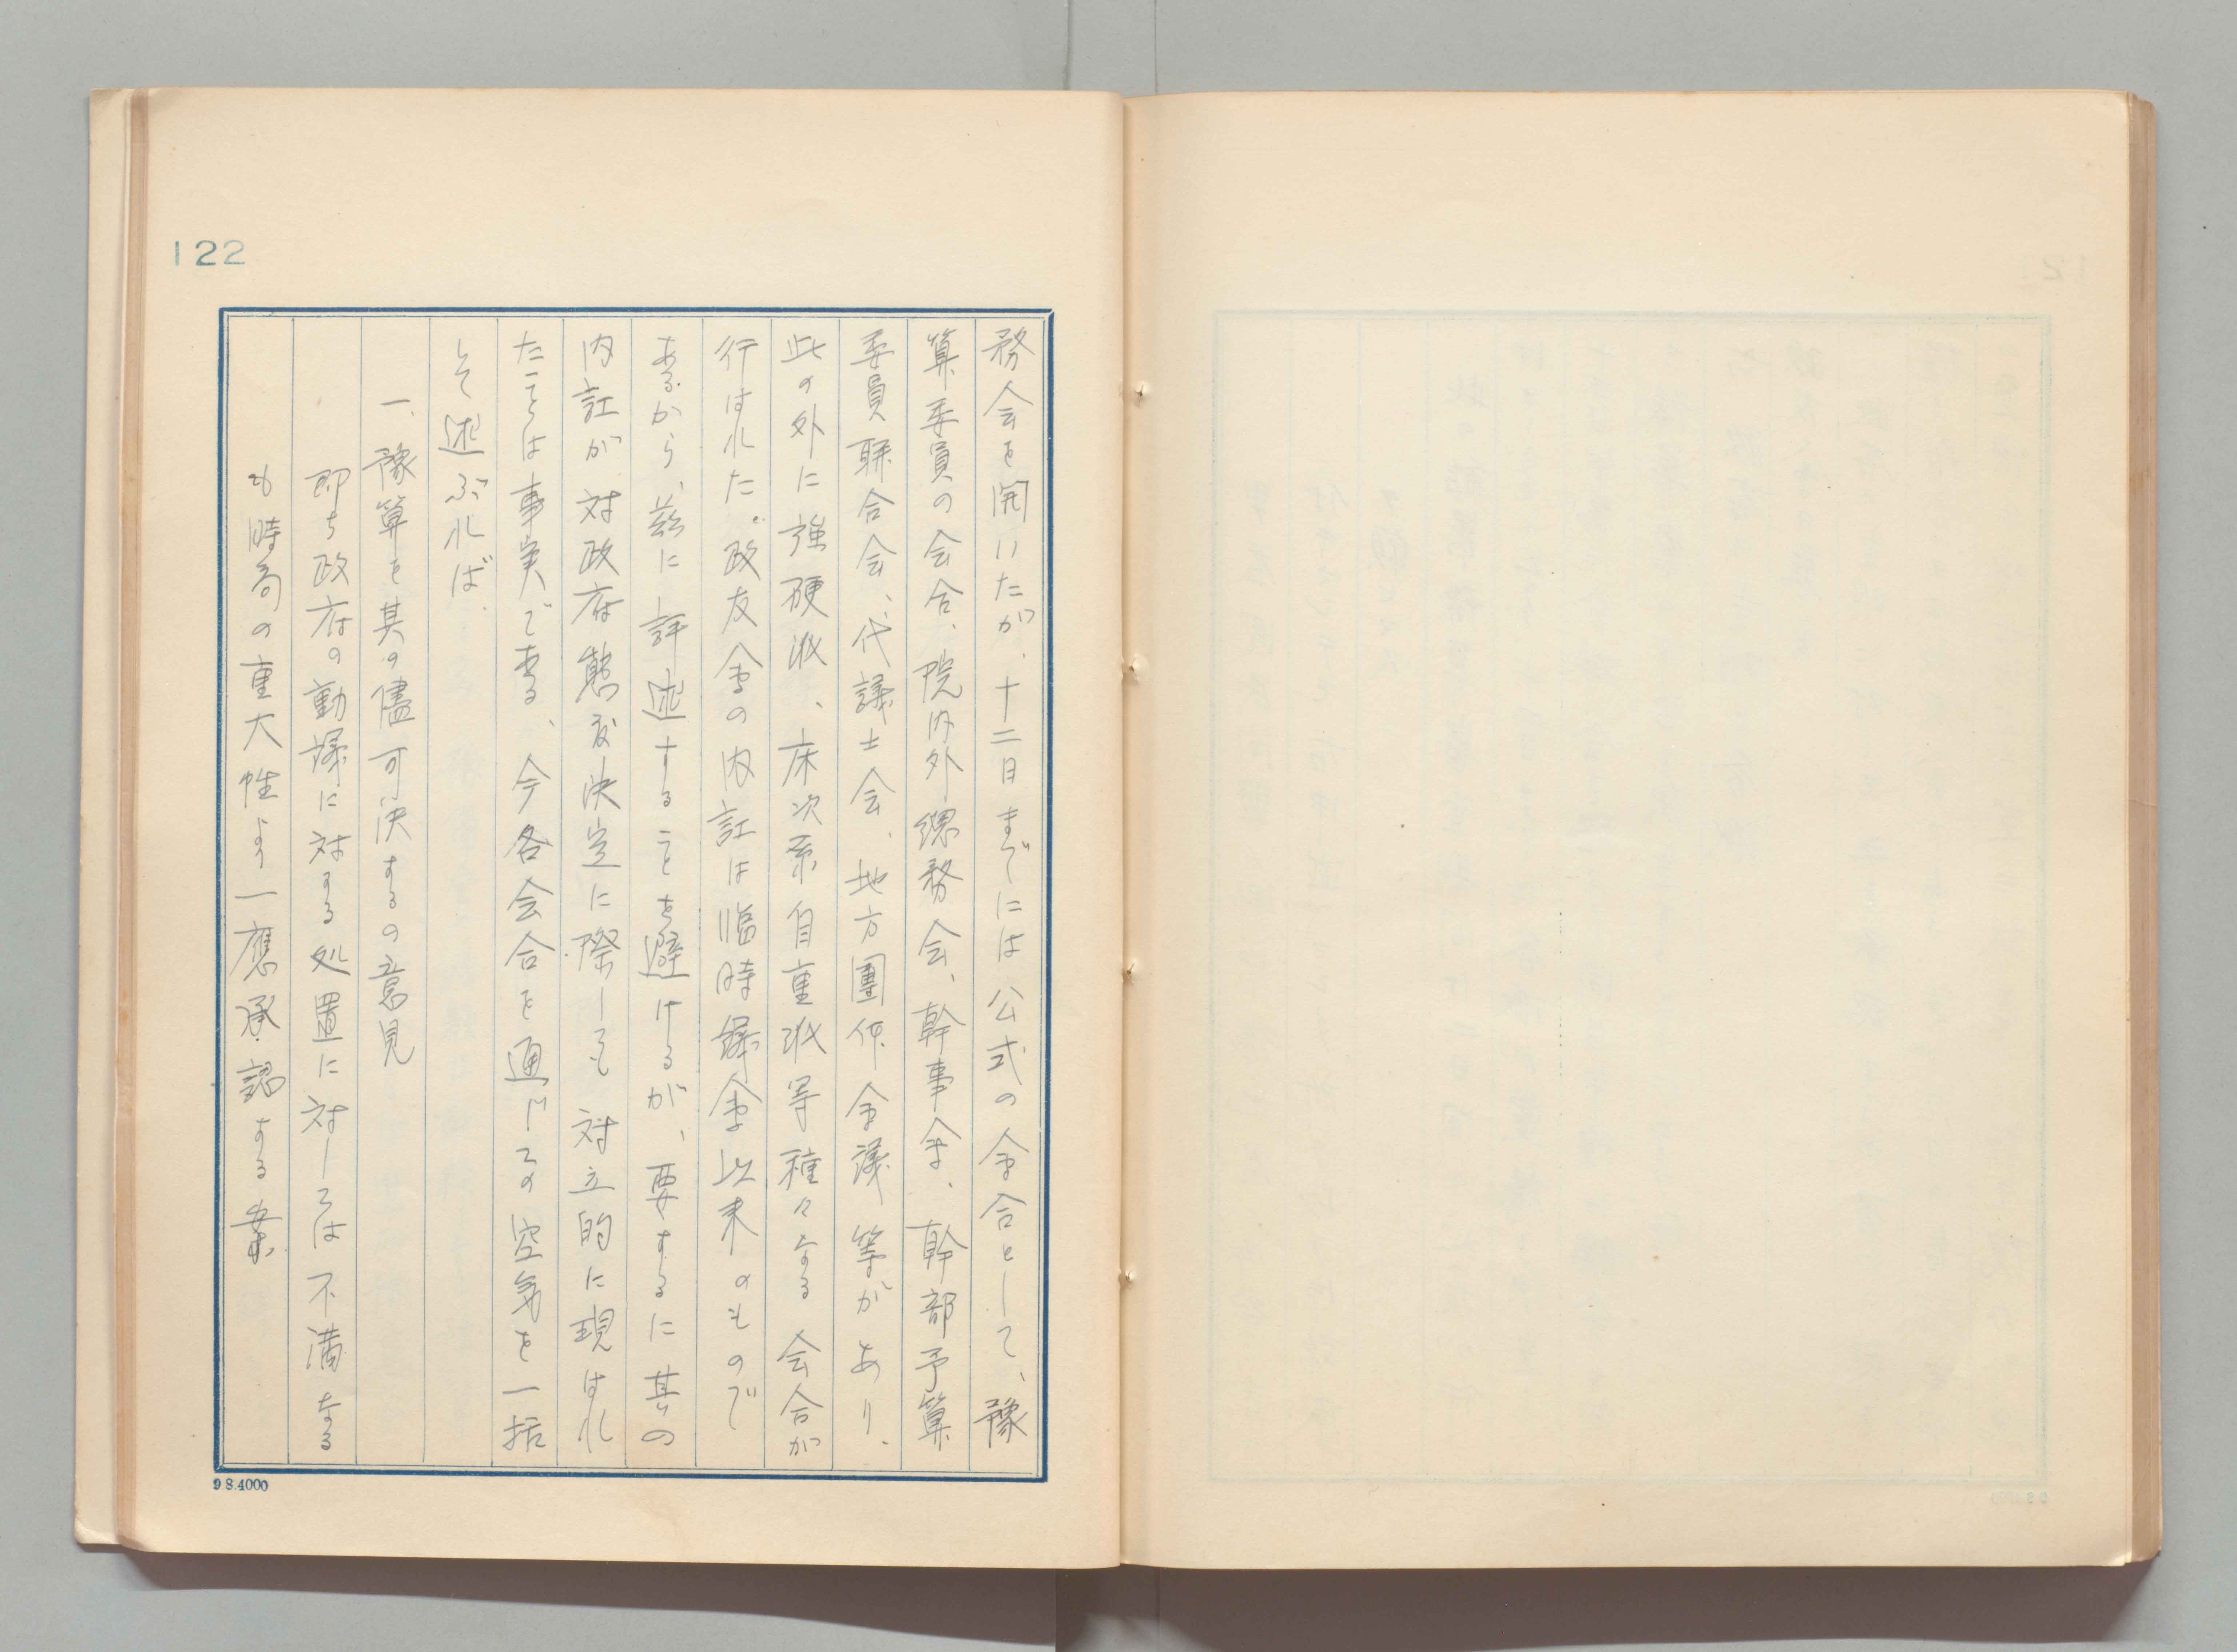 122
務会を開いたが、十二日までには公式の会合として、豫
算委員の会合、院内外總務会、幹事会、幹部予算
委員聯合会、代議士会、地方團体会議等があり、
此の外に強硬派、床次系自重派等種々なる会合が
行はれた。政友会の内訌は臨時議会以来のもので
あるから、茲に評述することを避けるが、要するに其の
内訌が対政府態度決定に際しても対立的に現はれ
たことは事実である、今各会合を通じての空気を一括
して述ぶれば、
一、豫算を其の儘可決するの意見
即ち政府の動議に対する処置に対しては不満なる
も時局の重大性より一應承認する案
9 8.4000